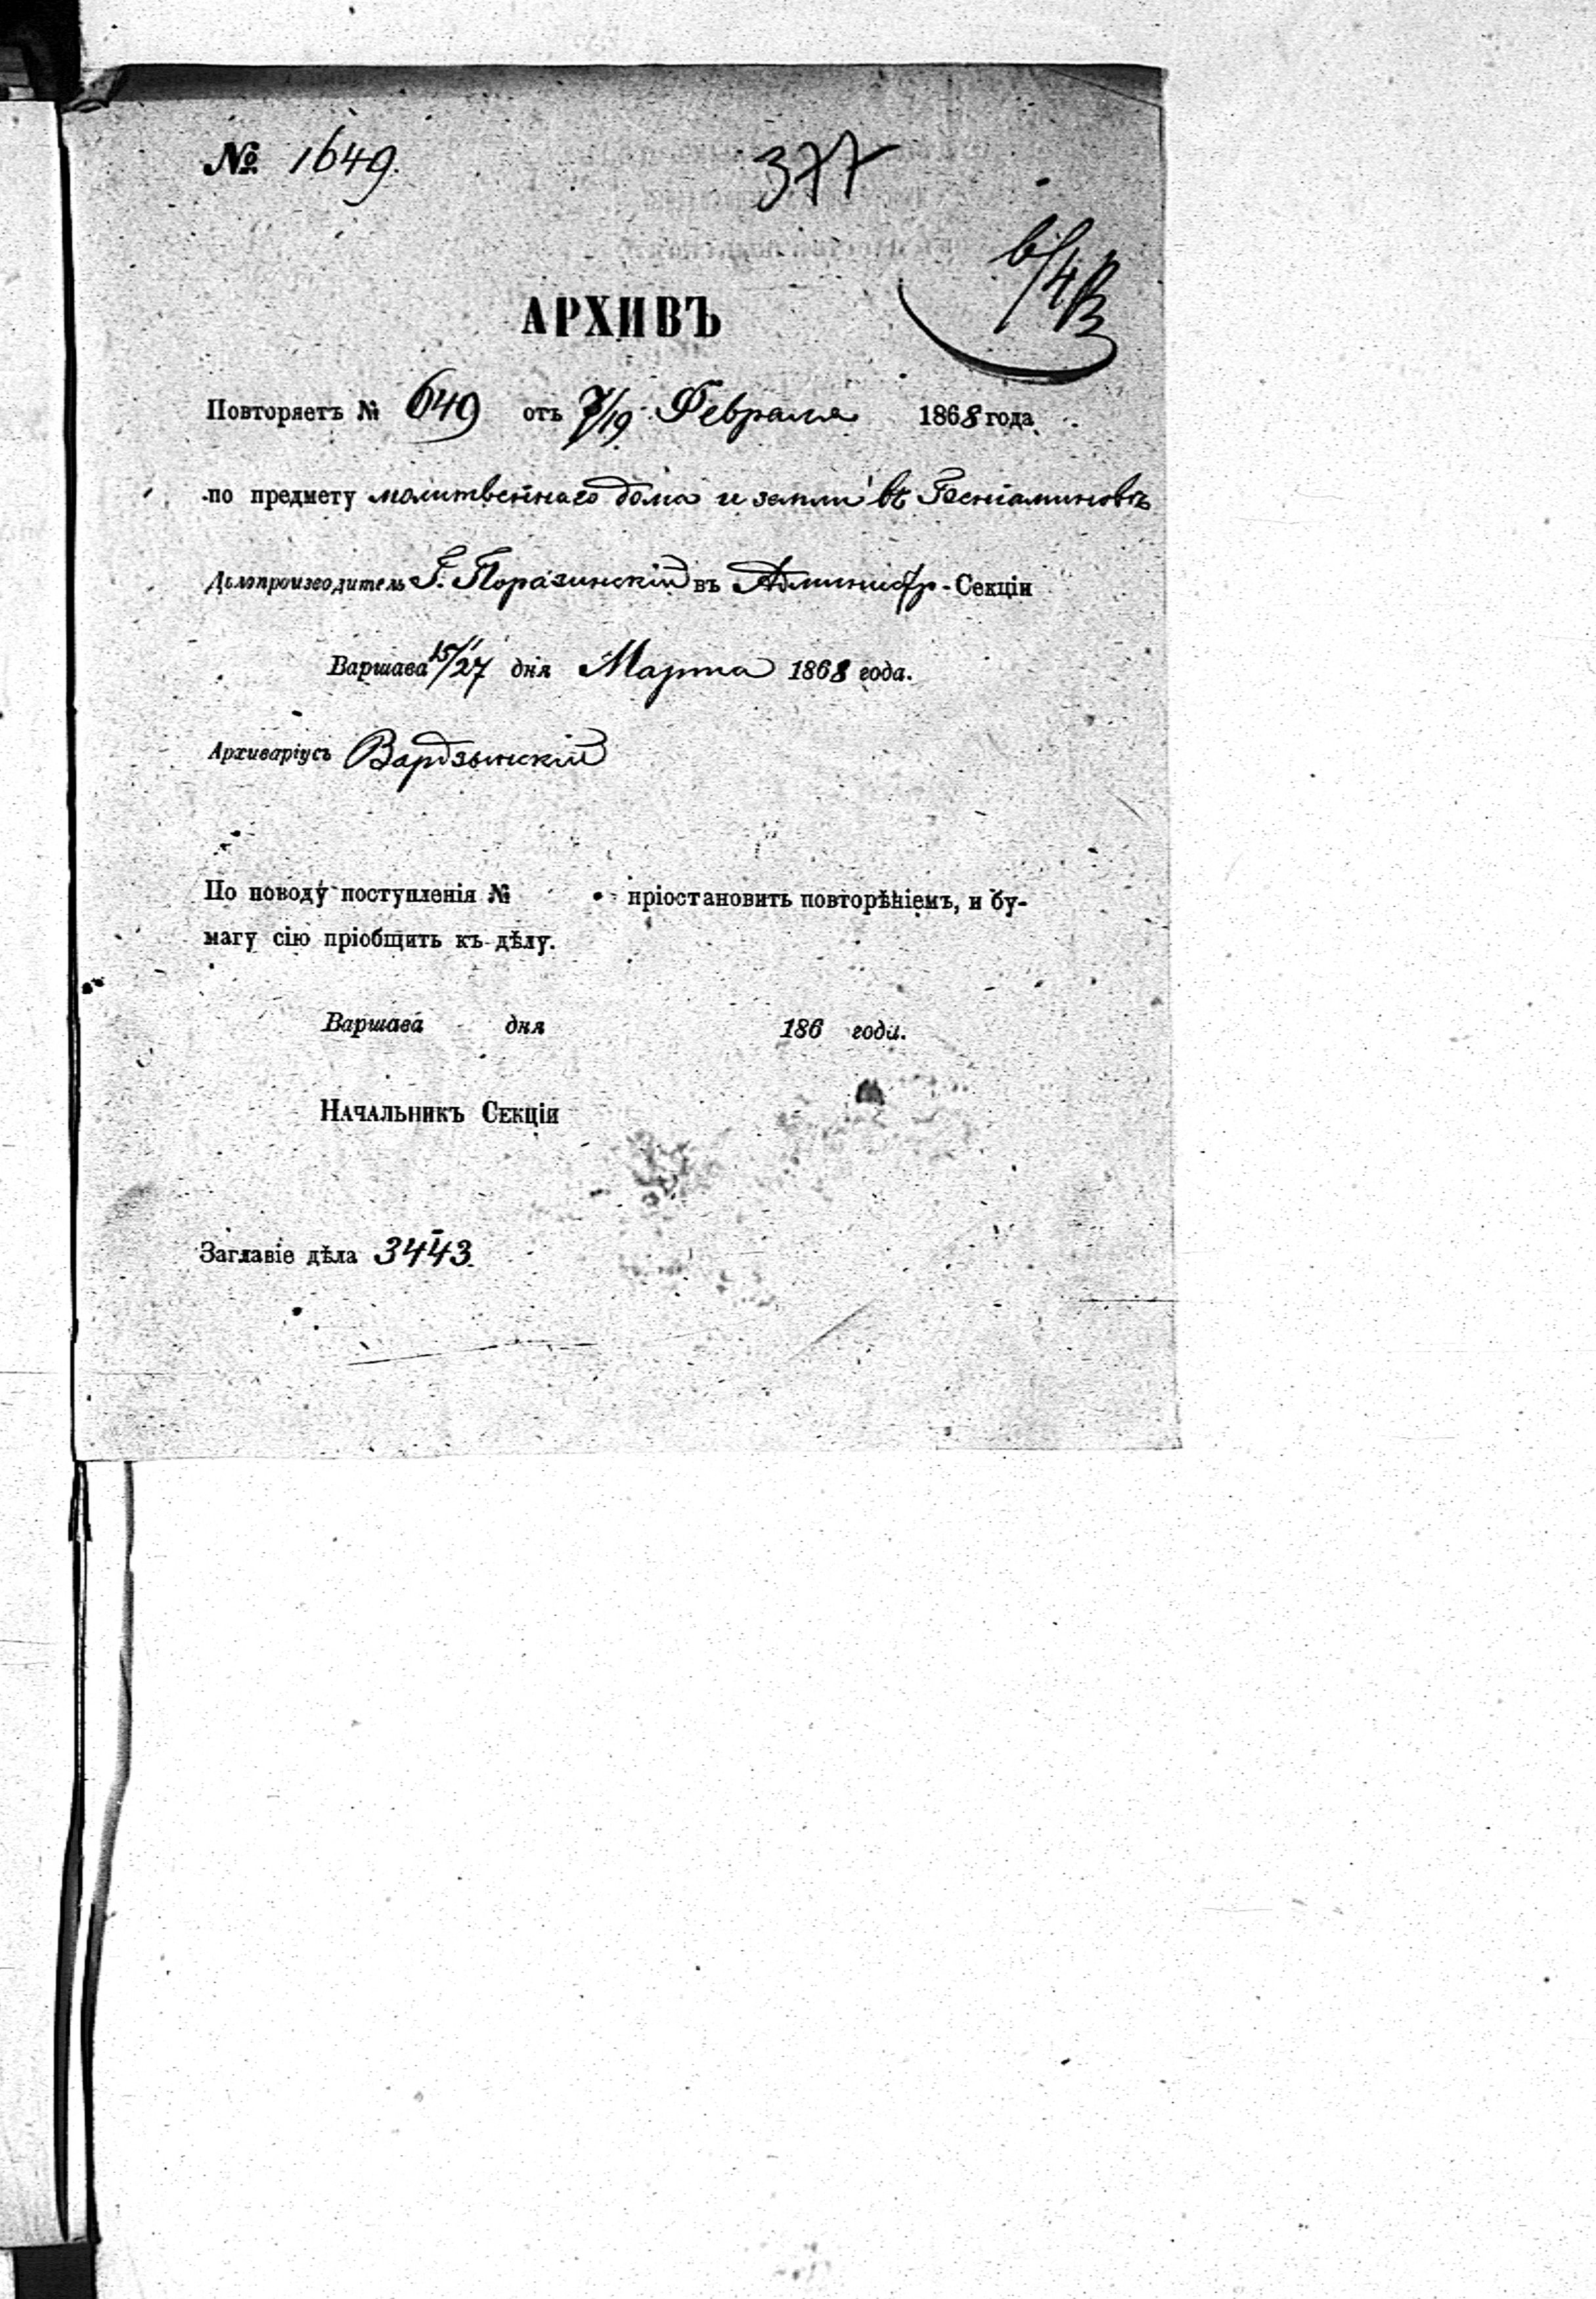 № 1649.
377
АРХИВЪ
Повторяетъ № 649 отъ 7/19 Февраля 1868 года
по предмету молитвеннаго дома и земли въ
Дѣлопроизводитель Г. Поразинскій въ Администр-Секціи
Варшава 15/27 дня Марта 1868 года.
Архиваріусъ Вардзынскій
По поводу поступленія № пріостановить повторѣніемъ, и бу-
магу сію пріобщить къ дѣлу.
Варшава дня 186 года.
Начальникъ Секціи
Заглавіе дѣла 3443.